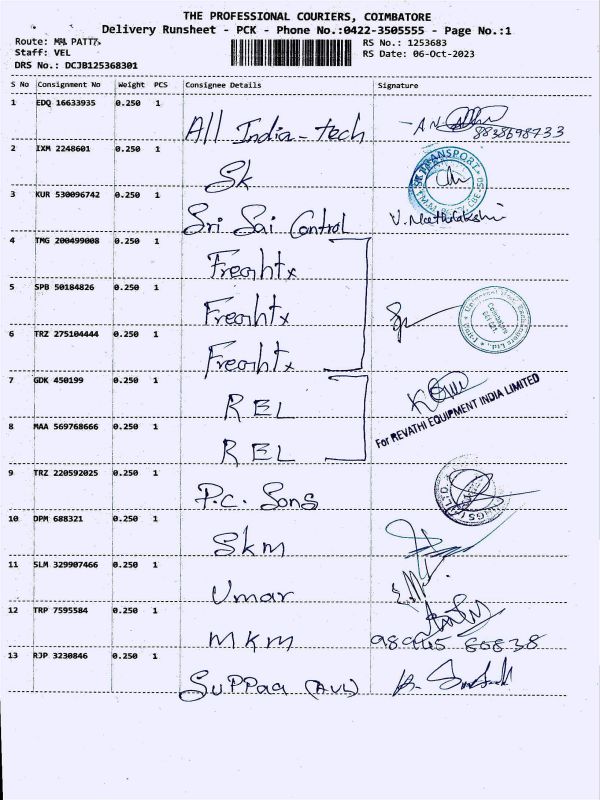 THE PROFESSIONAL COURIERS, COIMBATORE
Delivery Runsheet - PCK - Phone No.:0422-3505555 - Page No.:1
Route: PATTI
RS No.: 1253683
Staff: VEL
RS Date: 06-Oct-2023
DRS No.: DCJB125368301
S No Consignment No Weight PCS Consignee Details Signature
1 EDQ 16633935 0.250 1 All India-tech
2 IXM 2248601 0.250 1 Sk
SK TRANSPORT
3 KUR 530096742 0.250 1 Sri Sai Control
4 TMG 200499008 0.250 1 Freoihtx
5 SPB 50184826 0.250 1 Freoihtx
6 TRZ 275104444 0.250 1 Freoihtx
7 GDK 450199 0.250 1 REL
For REVATHI EQUIPMENT INDIA LIMITED
8 MAA 569768666 0.250 1 REL
9 TRZ 220592025 0.250 1 P.C. Sons
10 DPM 688321 0.250 1 Skm
11 SLM 329907466 0.250 1 Umar
12 TRP 7595584 0.250 1 MKM
13 RJP 3230846 0.250 1 SUPPaa (AVL)